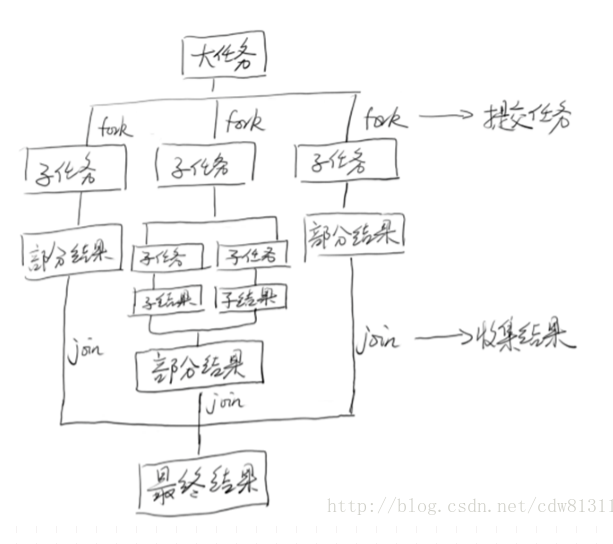 大任务
fork fork fork 提交任务
子任务 子任务 子任务
部分结果 子任务 子任务 部分结果
子结果 子结果
join 部分结果 join 收集结果
join
最终结果
http://blog.csdn.net/cdw81311